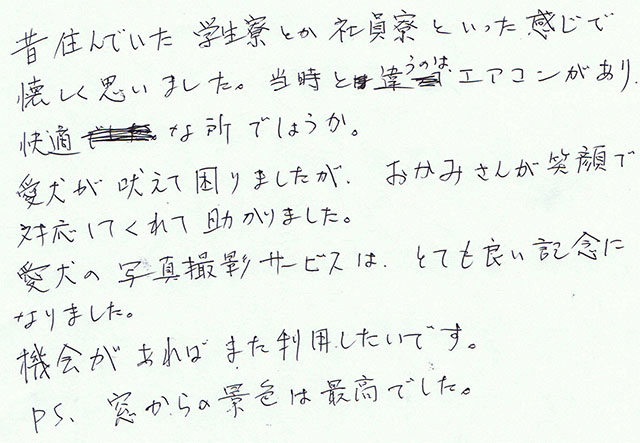 昔住んでいた学生寮とか社員寮といった感じで
懐しく思いました。当時と違うのはエアコンがあり、
快適な所でしょうか。
愛犬が吠えて困りましたが、おかみさんが笑顔で
対応してくれて助かりました。
愛犬の写真撮影サービスは、とても良い記念に
なりました。
機会があればまた利用したいです。
PS、窓からの景色は最高でした。